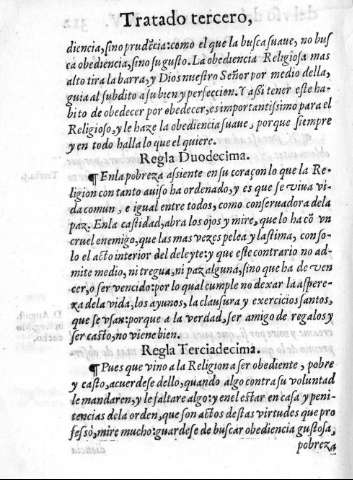 Tratado tercero,
diencia, sino prudẽcia: como el que la busca suaue, no bus
ca obediencia, sino su gusto. La obediencia Religiosa mas
alto tira la barra, y Dios nuestro Señor por medio della,
guia al subdito a su bien y perfeccion. Y aßi tener este ha-
bito de obedecer por obedecer, es importantissimo para el
Religioso, y le haze la obediencia suaue, porque siempre
y en todo halla lo que el quiere.
Regla Duodecima.
¶ En la pobreza assiente en su coraçon lo que la Re-
ligion con tanto auiso ha ordenado, y es que se viua vi-
da comun, e igual entre todos, como conseruadora de la
paz. En la castidad, abra los ojos y mire, que lo ha cõ vn
cruel enemigo, que las mas vezes pelea y lastima, con so-
lo el acto interior del deleyte: y que este contrario no ad-
mite medio, ni tregua, ni paz alguna, sino que ha de ven
cer, o ser vencido: por lo qual cumple no dexar la aspere-
za de la vida, los ayunos, la clausura y exercicios santos,
que se vsan: porque a la verdad, ser amigo de regalos y
ser casto, no viene bien.
Regla Terciadecima.
¶ Pues que vino a la Religion a ser obediente, pobre
y casto, acuerdese dello, quando algo contra su voluntad
le mandaren, y le faltare algo: y en el estar en casa y peni-
tencias de la orden, que son actos destas virtudes que pro
fessó, mire mucho: guardese de buscar obediencia gustosa,
pobreza